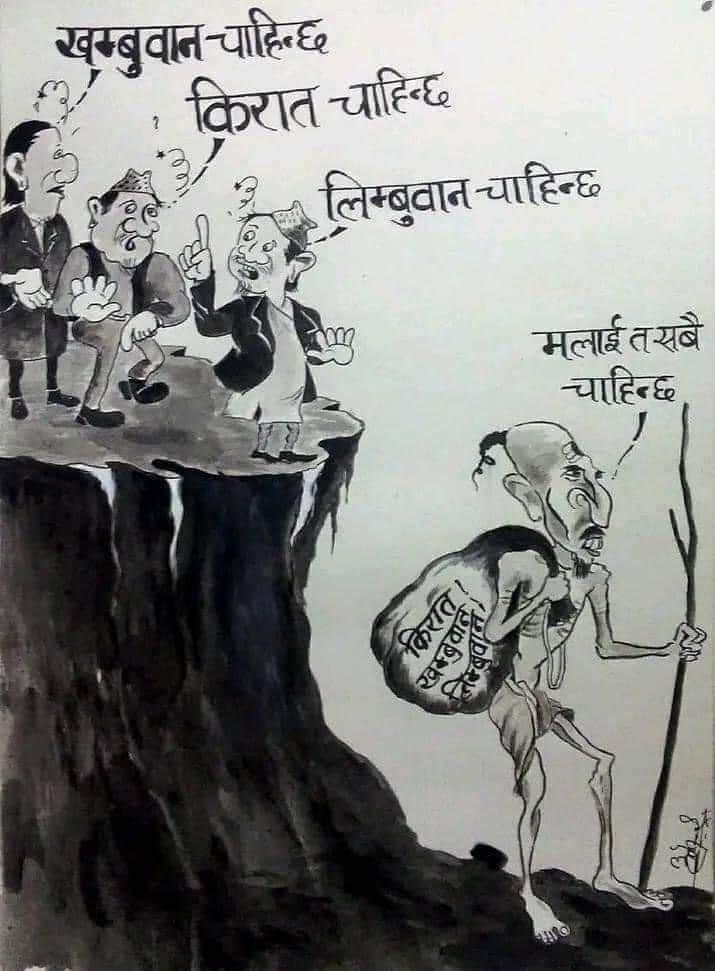 खम्बुवान चाहिन्छ
किरात चाहिन्छ
लिम्बुवान चाहिन्छ
मलाई त सबै
चाहिन्छ
किरात,
खम्बुवान,
लिम्बुवान,